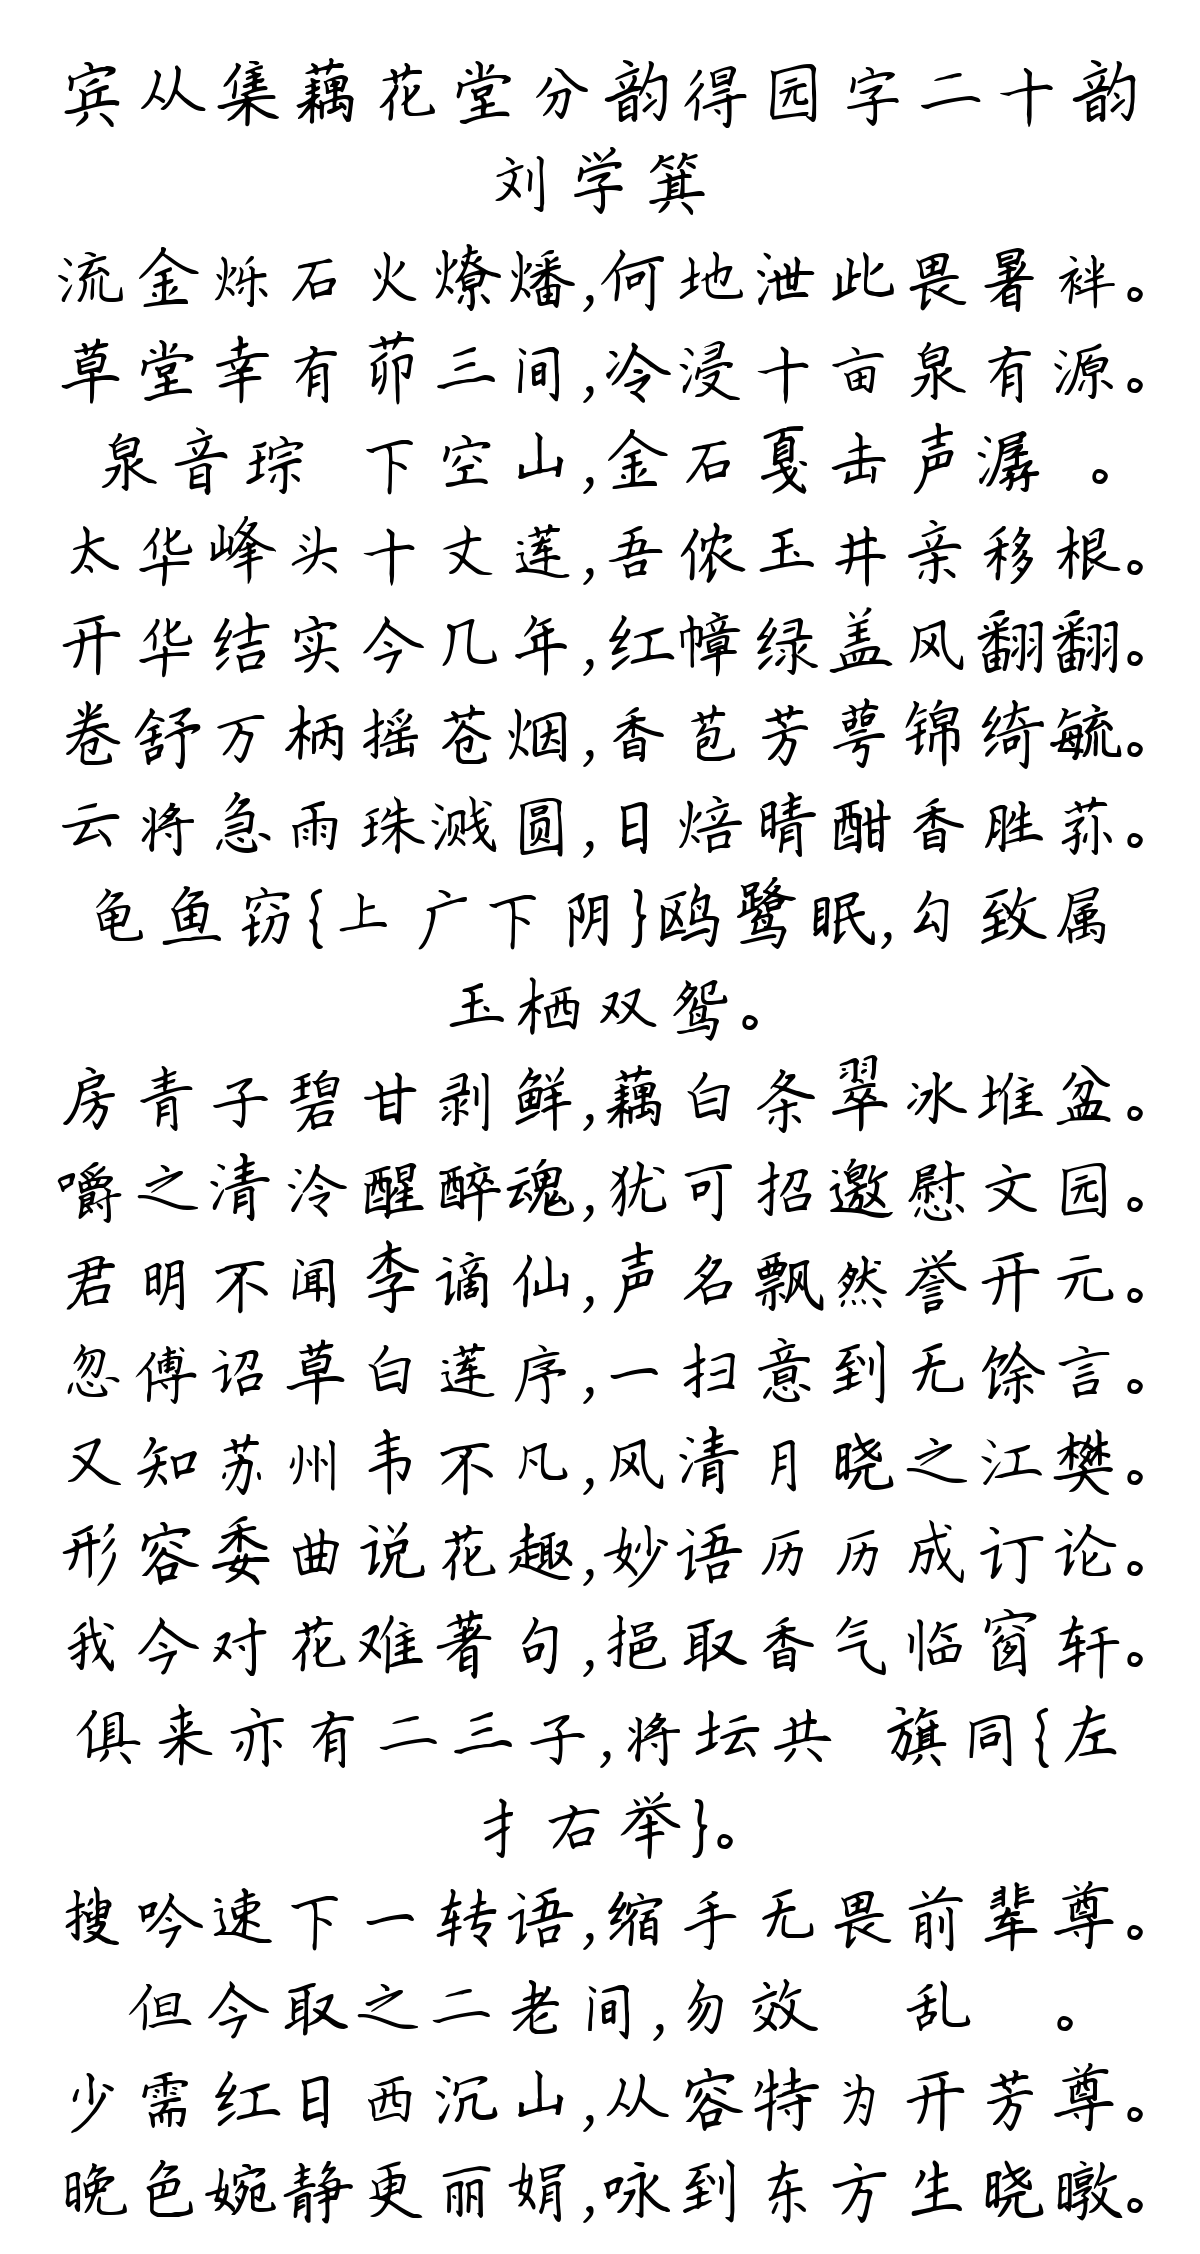 宾从集藕花堂分韵得园字二十韵
刘学箕
流金烁石火燎燔,何地泄此畏暑袢。
草堂幸有茆三间,冷浸十亩泉有源。
泉音琮 下空山,金石戛击声潺 。
太华峰头十丈莲,吾侬玉井亲移根。
开华结实今几年,红幛绿盖风翻翻。
卷舒万柄摇苍烟,香苞芳萼锦绮毓。
云将急雨珠溅圆,日焙晴酣香胜荪。
龟鱼窃{上广下阴}鸥鹭眠,勾致属
玉栖双鸳。
房青子碧甘剥鲜,藕白条翠冰堆盆。
嚼之清泠醒醉魂,犹可招邀慰文园。
君明不闻李谪仙,声名飘然誉开元。
忽傅诏草白莲序,一扫意到无馀言。
又知苏州韦不凡,风清月晓之江樊。
形容委曲说花趣,妙语历历成订论。
我今对花难著句,挹取香气临窗轩。
俱来亦有二三子,将坛共 旗同{左
扌右举}。
搜吟速下一转语,缩手无畏前辈尊。
但今取之二老间,勿效 乱 。
少需红日西沉山,从容特为开芳尊。
晚色婉静更丽娟,咏到东方生晓暾。